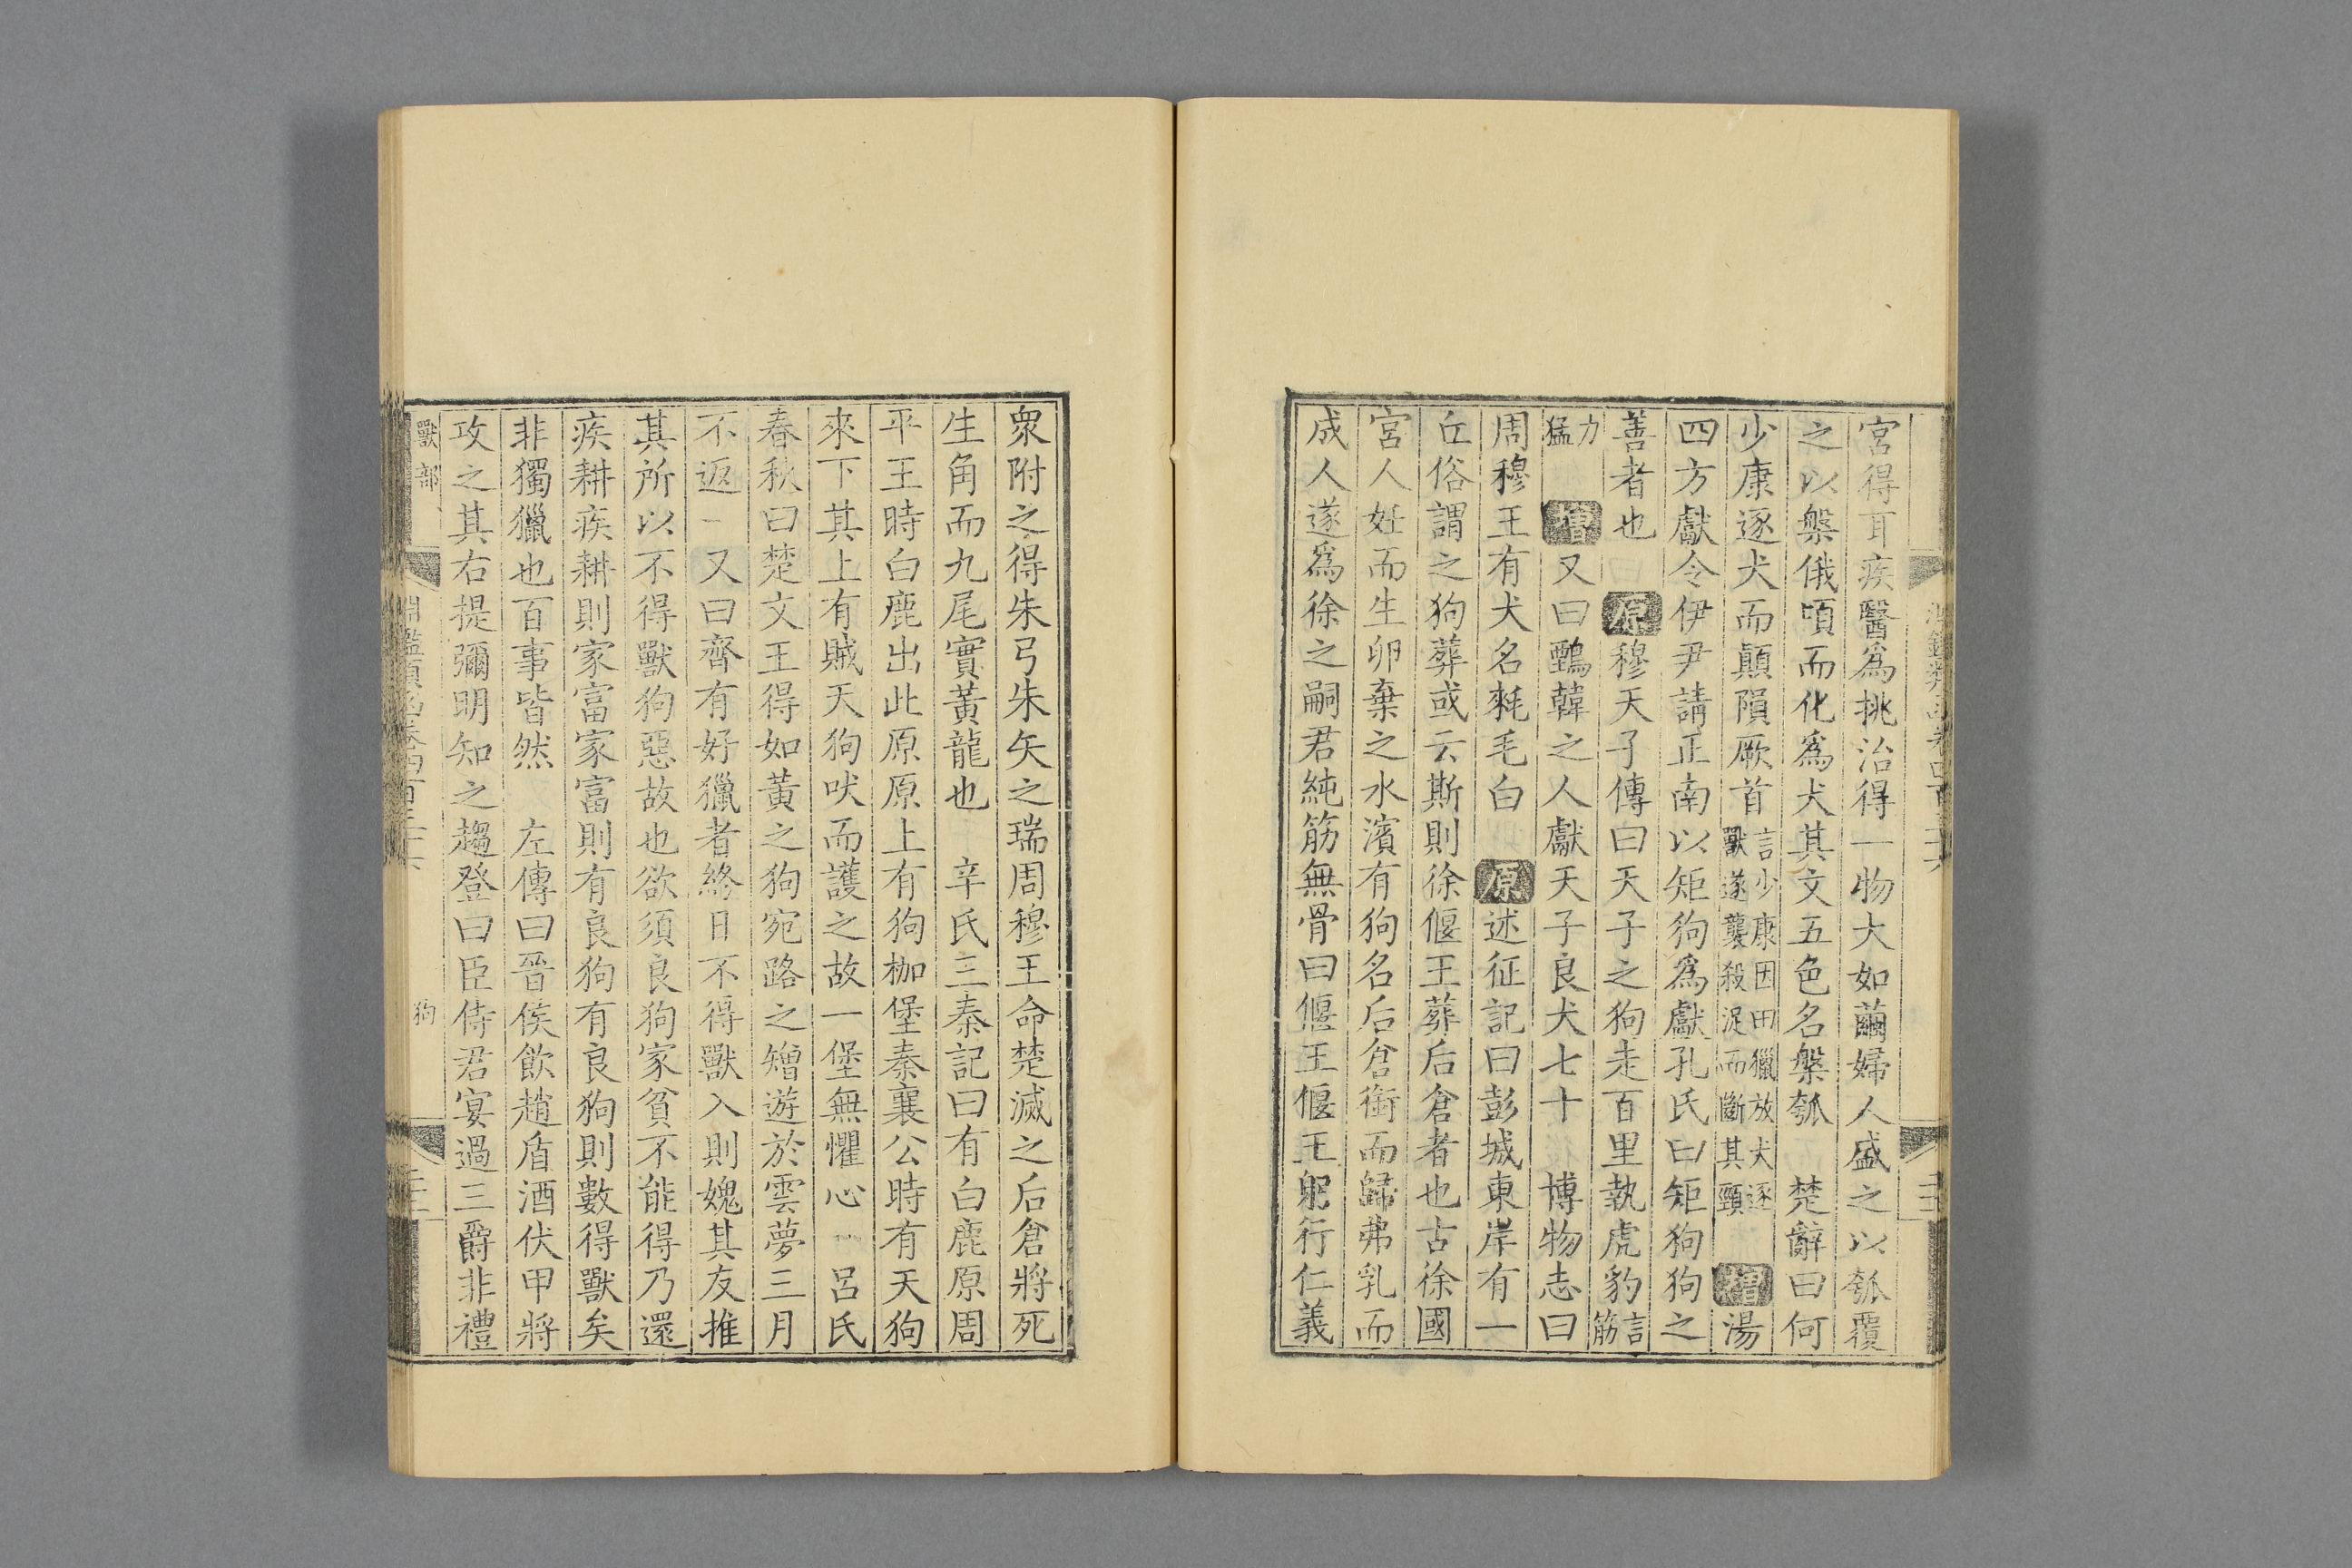 宮得耳疾醫爲挑治得一物大如繭婦人盛之以瓠覆
之以槃俄頃而化爲犬其文五色名槃瓠 楚辭曰何
少康逐犬而顛隕厥首言少康因田獵放犬逐獸遂襲殺浞而斷其頸 增 湯
四方獻令伊尹請正南以矩狗爲獻孔氏曰矩狗狗之
善者也 原 穆天子傳曰天子之狗走百里執虎豹言筋
力猛 增 又曰鸀韓之人獻天子良犬七十 博物志曰
周穆王有犬名耗毛白 原 述征記曰彭城東岸有一
丘俗謂之狗葬或云斯則徐偃王葬后倉者也古徐國
宮人妊而生卵棄之水濱有狗名后倉銜而歸弗乳而
成人遂爲徐之嗣君純筋無骨曰偃王偃王躬行仁義
衆附之得朱弓朱矢之瑞周穆王命楚滅之后倉將死
生角而九尾實黃龍也 辛氏三秦記曰有白鹿原周
平王時白鹿出此原原上有狗枷堡秦襄公時有天狗
來下其上有賊天狗吠而護之故一堡無懼心 呂氏
春秋曰楚文王得如黃之狗宛路之矰遊於雲夢三月
不返 又曰齊有好獵者終日不得獸入則媿其友推
其所以不得獸狗惡故也欲須良狗家貧不能得乃還
疾耕疾耕則家富家富則有良狗有良狗則數得獸矣
非獨獵也百事皆然 左傳曰晉侯飲趙盾酒伏甲將
攻之其右提彌明知之趨登曰臣侍君宴過三爵非禮
獸部 淵鑑類函卷四百三十六 狗